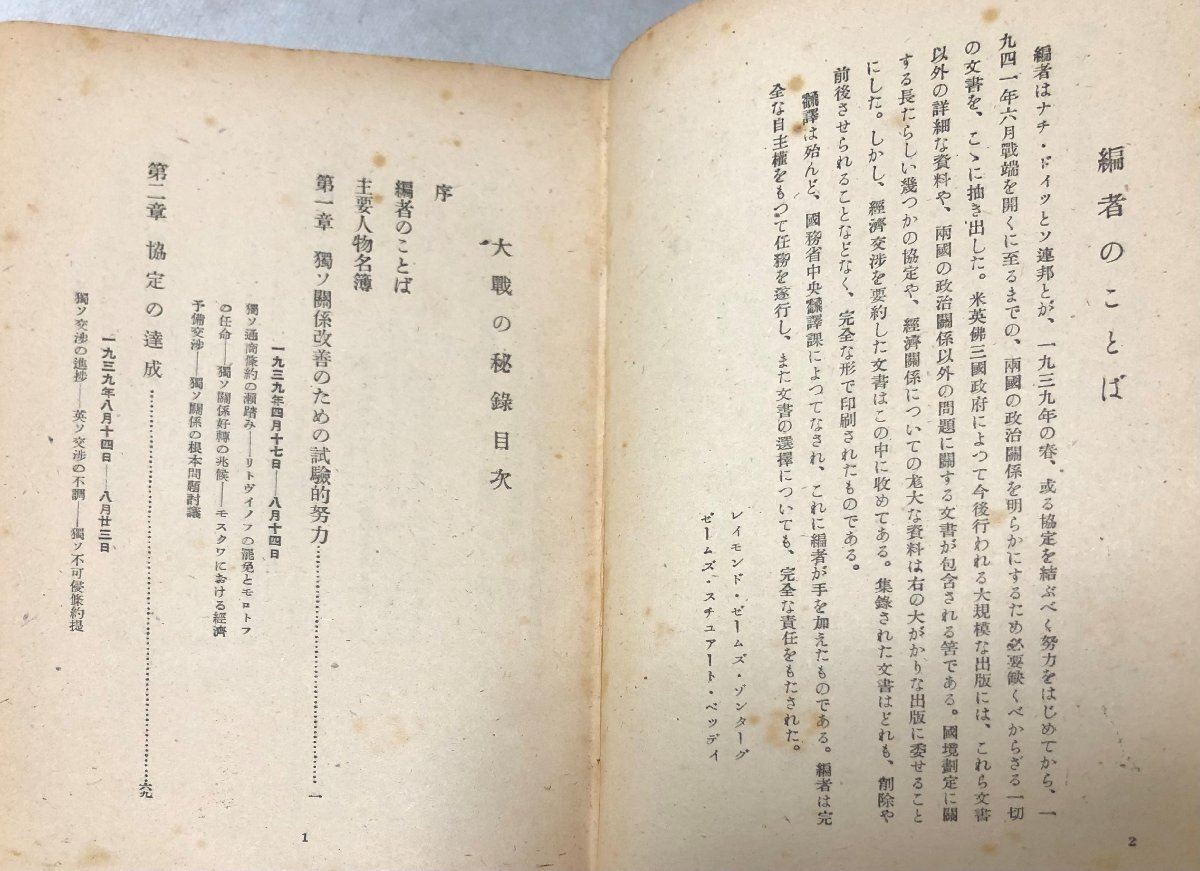 編者のことば
編者はナチ・ドイッとソ連邦とが、一九三九年の春、或る協定を結ぶべく努力をはじめてから、一
九四一年六月戰端を開くに至るまでの、兩國の政治關係を明らかにするため必要缺くべからざる一切
の文書を、こゝに抽き出した。米英佛三國政府によつて今後行われる大規模な出版には、これら文書
以外の詳細な資料や、兩國の政治關係以外の問題に關する文書が包含される筈である。國境劃定に關
する長たらしい幾つかの協定や、經濟關係についての尨大な資料は右の大がかりな出版に委せること
にした。しかし、經濟交渉を要約した文書はこの中に收めてある。集錄された文書はどれも、削除や
前後させられることなどなく、完全な形で印刷されたものである。
飜譯は殆んど、國務省中央飜譯課によつてなされ、これに編者が手を加えたものである。編者は完
全な自主權をもつて任務を遂行し、また文書の選擇についても、完全な責任をもたされた。
レイモンド・ゼームズ・ゾンターグ
ゼームズ・スチュアート・ベッデイ
2
大戰の秘錄目次
序
編者のことば
主要人物名簿
第一章 獨ソ關係改善のための試驗的努力……………………一
一九三九年四月十七日――八月十四日
獨ソ通商條約の瀬踏み――リトヴイノフの罷免とモロトフ
の任命――獨ソ關係好轉の兆候――モスクワにおける經濟
予備交渉――獨ソ關係の根本問題討議
第二章 協定の達成……………………………………六九
一九三九年八月十四日――八月廿三日
獨ソ交渉の進捗――英ソ交渉の不調――獨ソ不可侵條約提
1